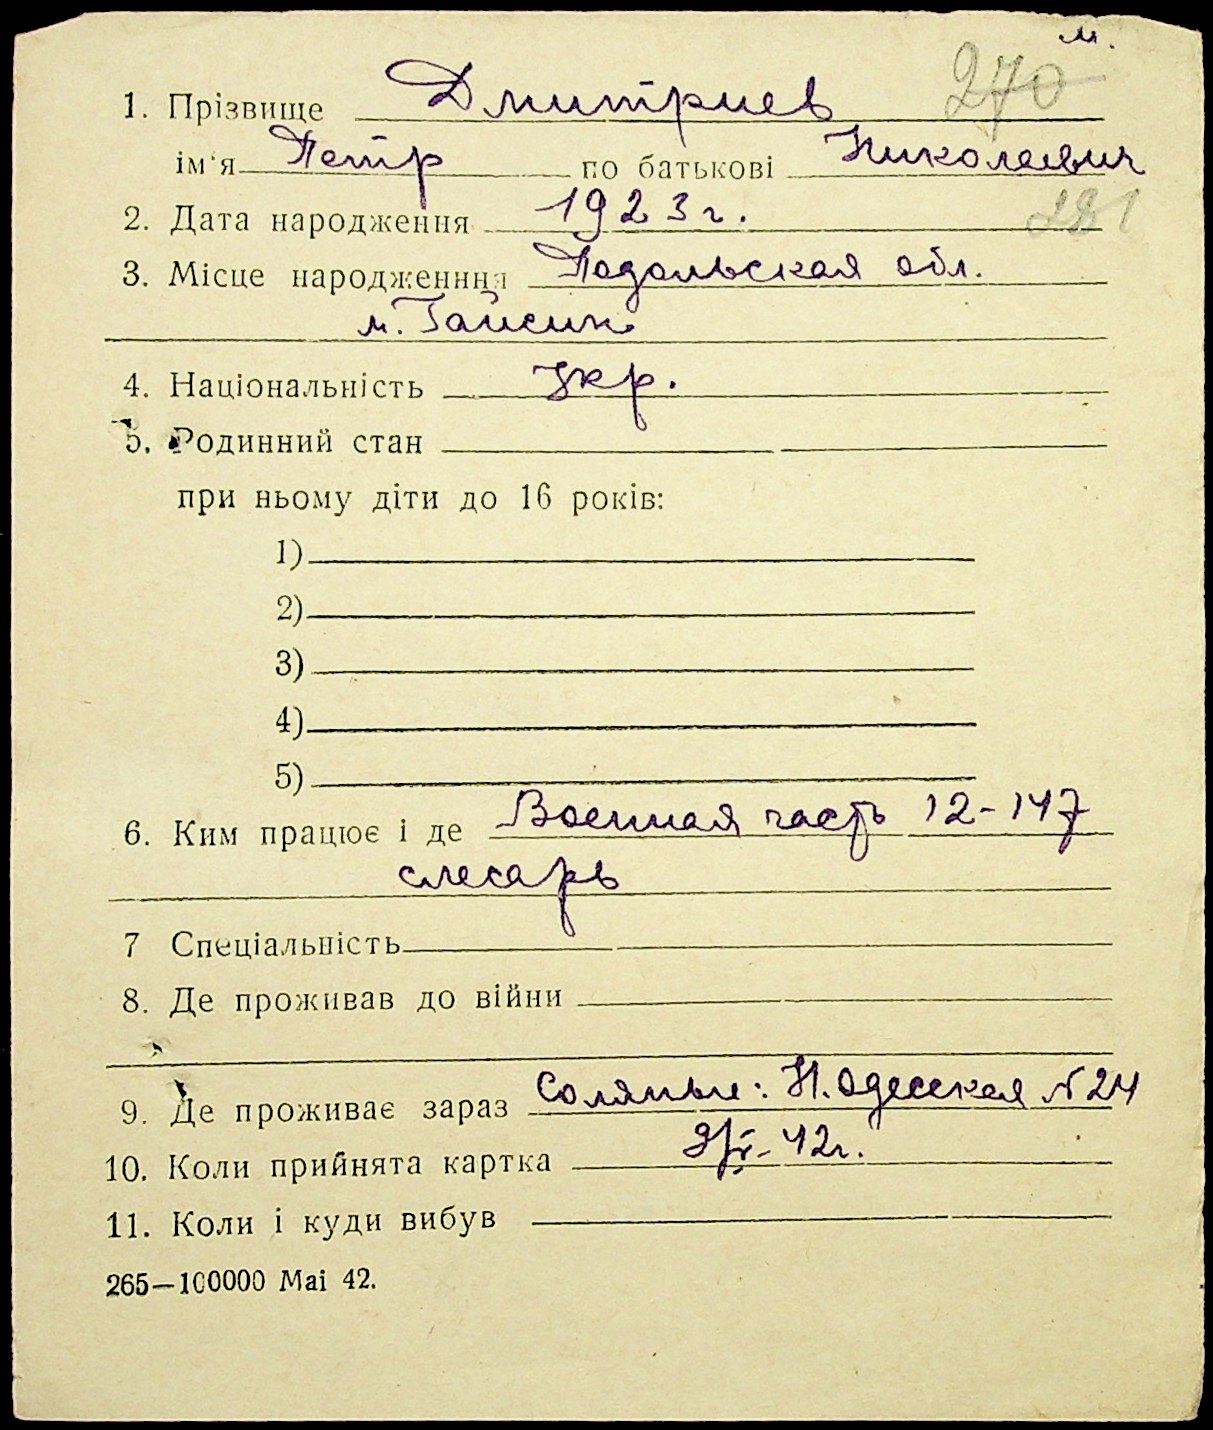 м.
1. Прізвище Дмитриев 270
ім'я Петр по батькові Николаевич
2. Дата народження 1923 г. 281
3. Місце народженння Подольская обл.
м. Гайсин
4. Національність Укр.
5. Родинний стан
при ньому діти до 16 років:
1)
2)
3)
4)
5)
6. Ким працює і де Военная часть 12-147
слесарь
7 Спеціальність
8. Де проживав до війни
9. Де проживає зараз Соляные: Н. Одесская №24
10. Коли прийнята картка 9/V-42г.
11. Коли і куди вибув
265—100000 Mai 42.